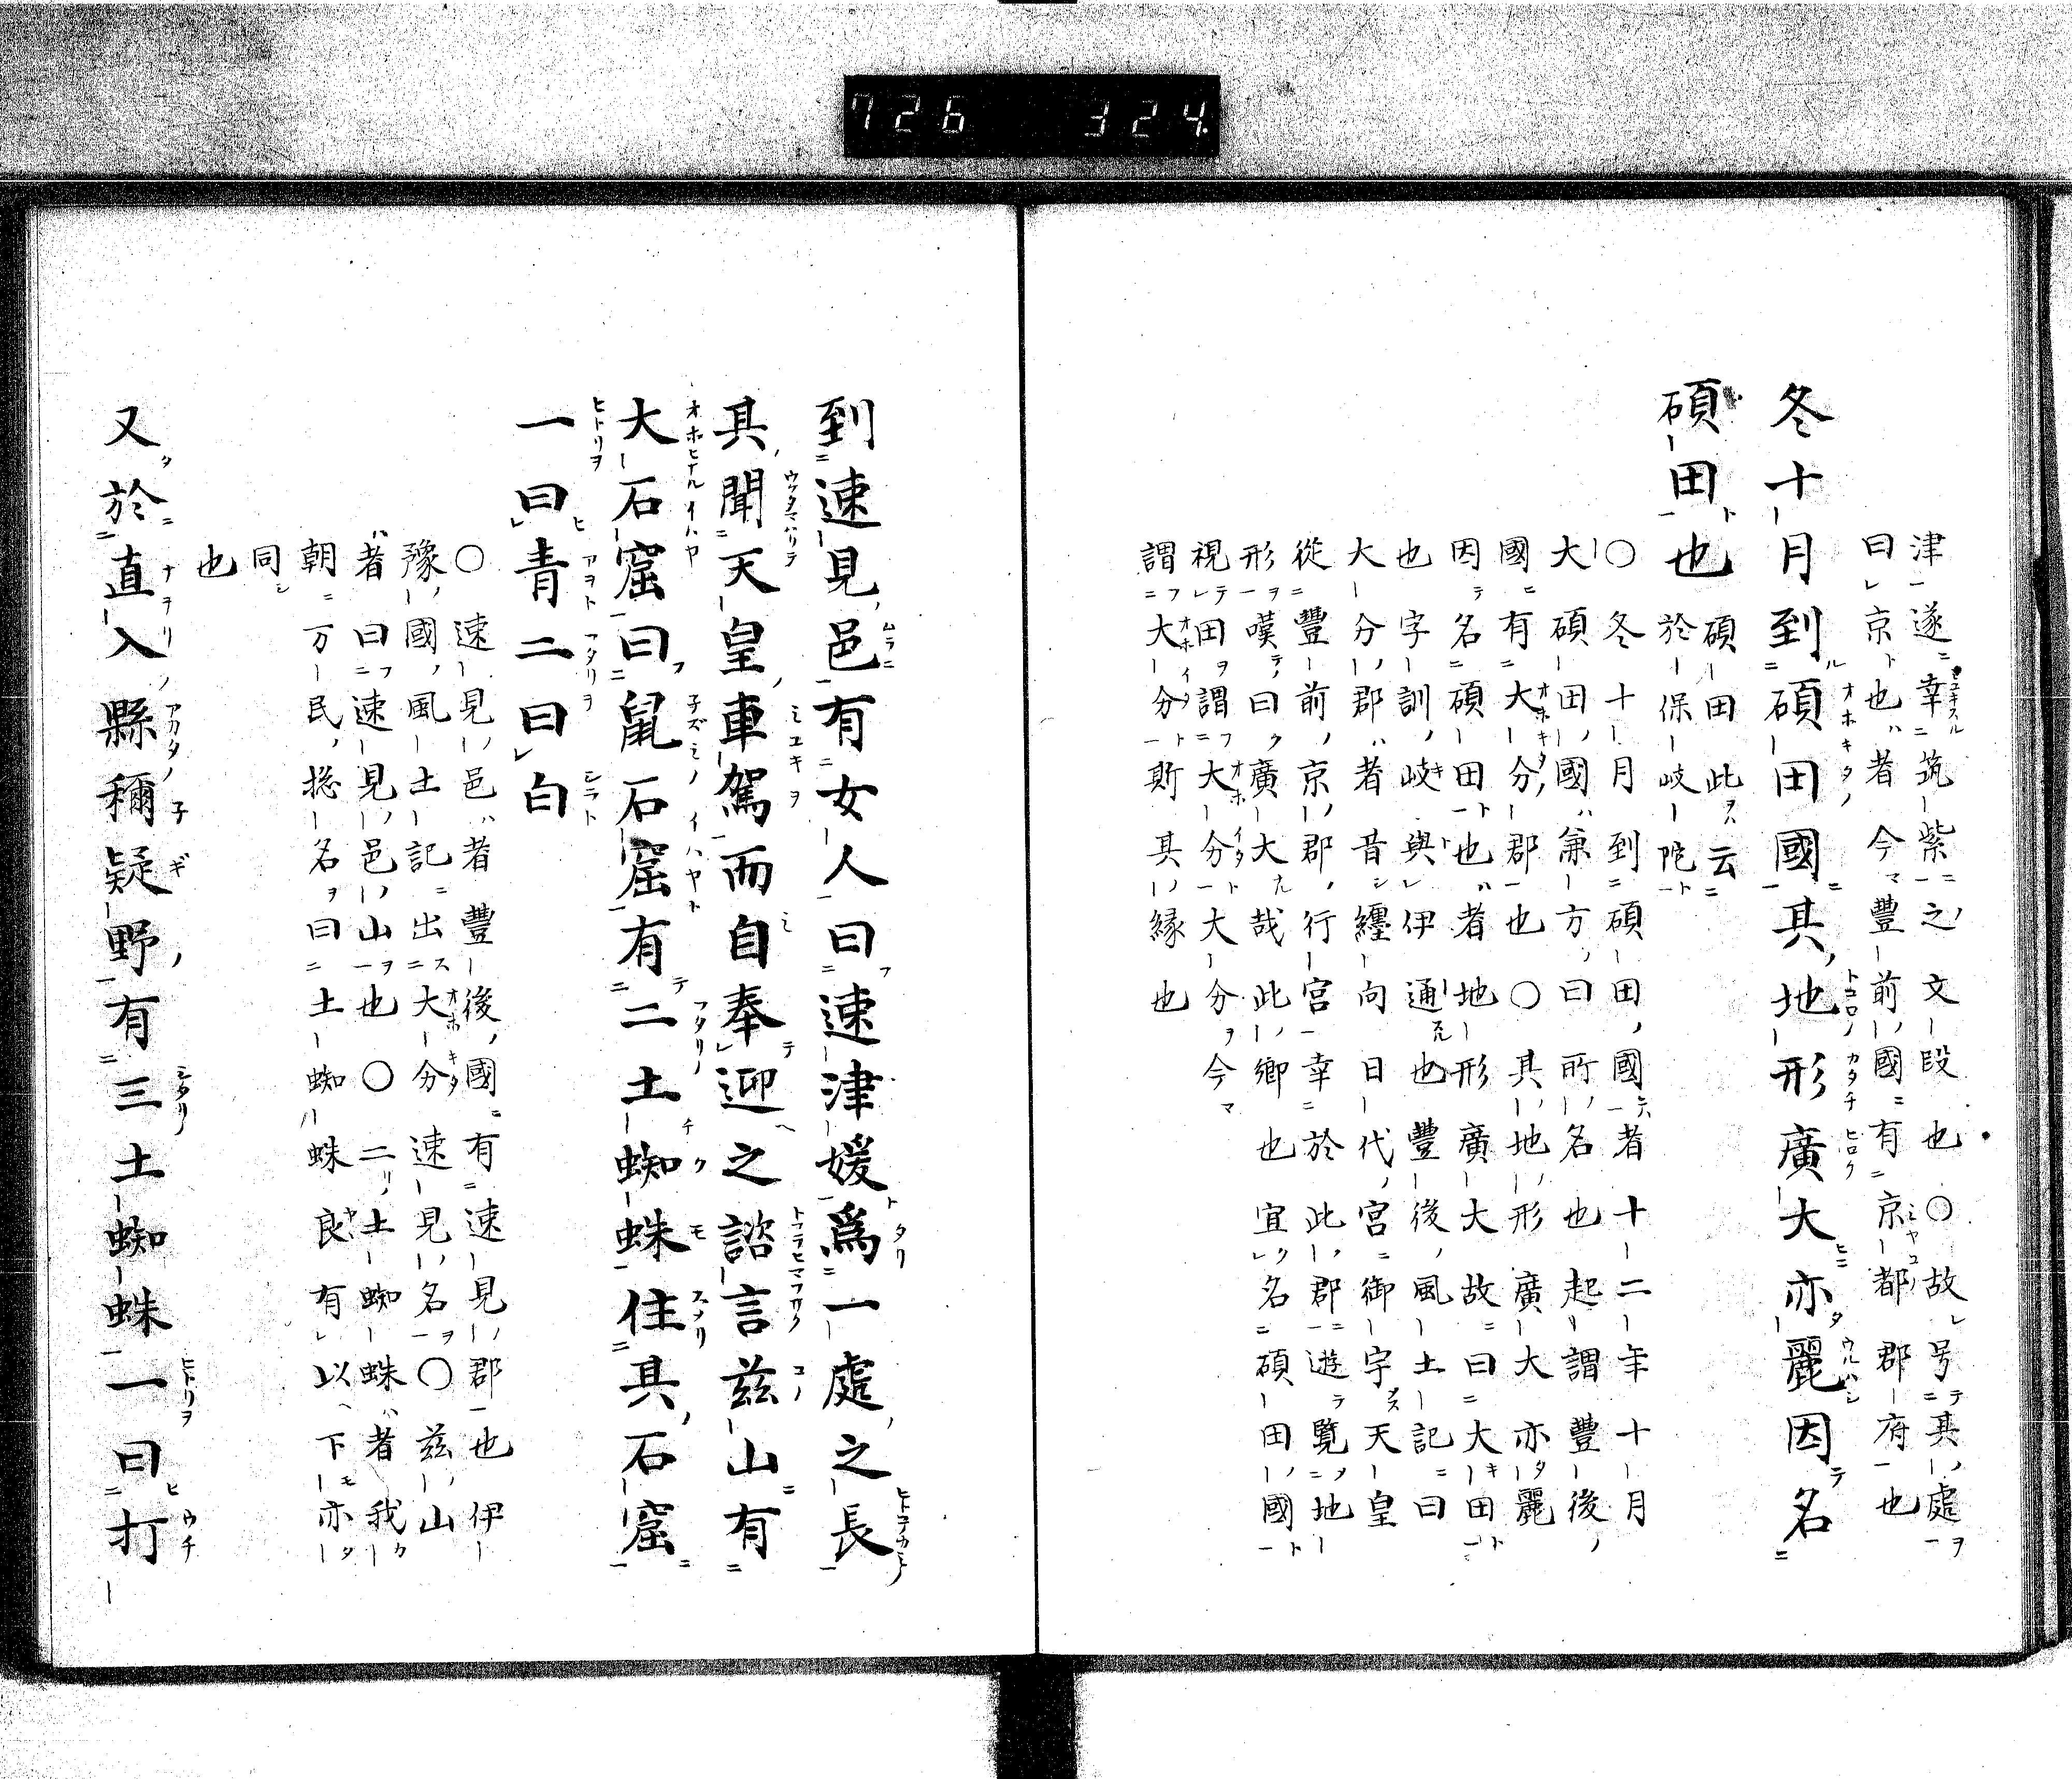 726 324.
津遂幸筑紫之文段也○故号其處
曰京也者今豐前國有京都郡府也
冬十月到碩田國其地形廣大亦麗因名
碩田也
碩田此云
於保岐陀
○冬十月到碩田國者十二年十月
大碩田國兼方曰所名也起謂豐後
國有大分郡也○其地形廣大亦麗
因名碩田也者地形廣大故曰大田
也字訓岐與伊通也豐後風土記曰
大分郡者昔纏向日代宮御宇天皇
從豐前京郡行宮幸於此郡遊覽地
形嘆曰廣大哉此鄉也宜名碩田國
視田謂大分大分今
謂大分斯其縁也
到速見邑有女人曰速津媛爲一處之長
其聞天皇車駕而自奉迎之諮言茲山有
大石窟曰鼠石窟有二土蜘蛛住其石窟
一曰青二曰白
○速見邑者豐後國有速見郡也伊
豫國風土記出大分速見名○茲山
者曰速見邑山也○二土蜘蛛者我
朝万民捴名曰土蜘蛛良有以下亦
同
也
又於直入縣禰疑野有三土蜘蛛一曰打